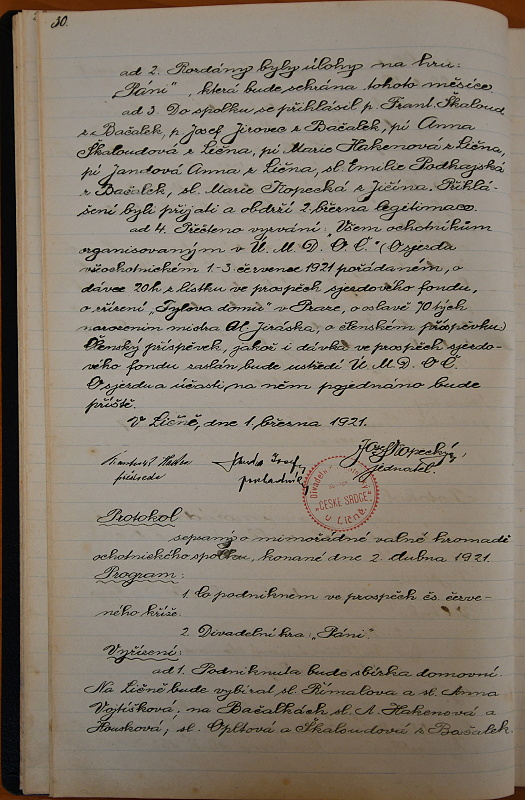 30.
ad 2. Rozdány byly úlohy na hru:
"Páni", která bude sehrána tohoto měsíce.
ad 3. Do spolku se přihlásil p. Frant. Škaloud
z Bačalek, p. Josef Jirovec z Bačalek, pí Anna
Škaloudová z Lična, pí Marie Hakenová z Lična,
pí Jandová Anna z Lična, sl. Emilie Podhajská
z Bačalek, sl. Marie Kopecká z Jičína. Přihlá-
šení byli přijati a obdrží 2. března legitimace.
ad 4. Přečteno vyzvání: "Všem ochotníkům
organisovaným v Ú. M. D. O. Č." (O sjezdu
všeochotnickém 1.-3. července 1921 pořádaném, o
dávce 20h z lístku ve prospěch sjezdového fondu,
o zřízení "Tylova domu" v Praze, o oslavě 70tých
narozenin mistra Al. Jiráska, o členském příspěvku)
Členský příspěvek, jakož i dávka ve prospěch sjezdo-
vého fondu zaslán bude ústředí Ú. M. D. O. Č.
O sjezdu a účasti na něm pojednáno bude
příště.
V Ličně, dne 1. března 1921.
předseda
Josef
pokladník
Kopecký,
jednatel.
"ČESKÉ SRDCE"
v Ličně.
Protokol
sepsaný o mimořádné valné hromadě
ochotnického spolku, konané dne 2. dubna 1921.
Program:
1. Co podniknem ve prospěch čs. červe-
ného kříže.
2. Divadelní hra: "Páni".
Vyřízení:
ad 1. Podniknuta bude sbírka domovní.
Na Ličně bude vybírat sl. Římalova a sl. Anna
Vojtíšková; na Bačalkách sl. A. Hakenová a
Housková; sl. Opltová a Škaloudová z Bačalek.